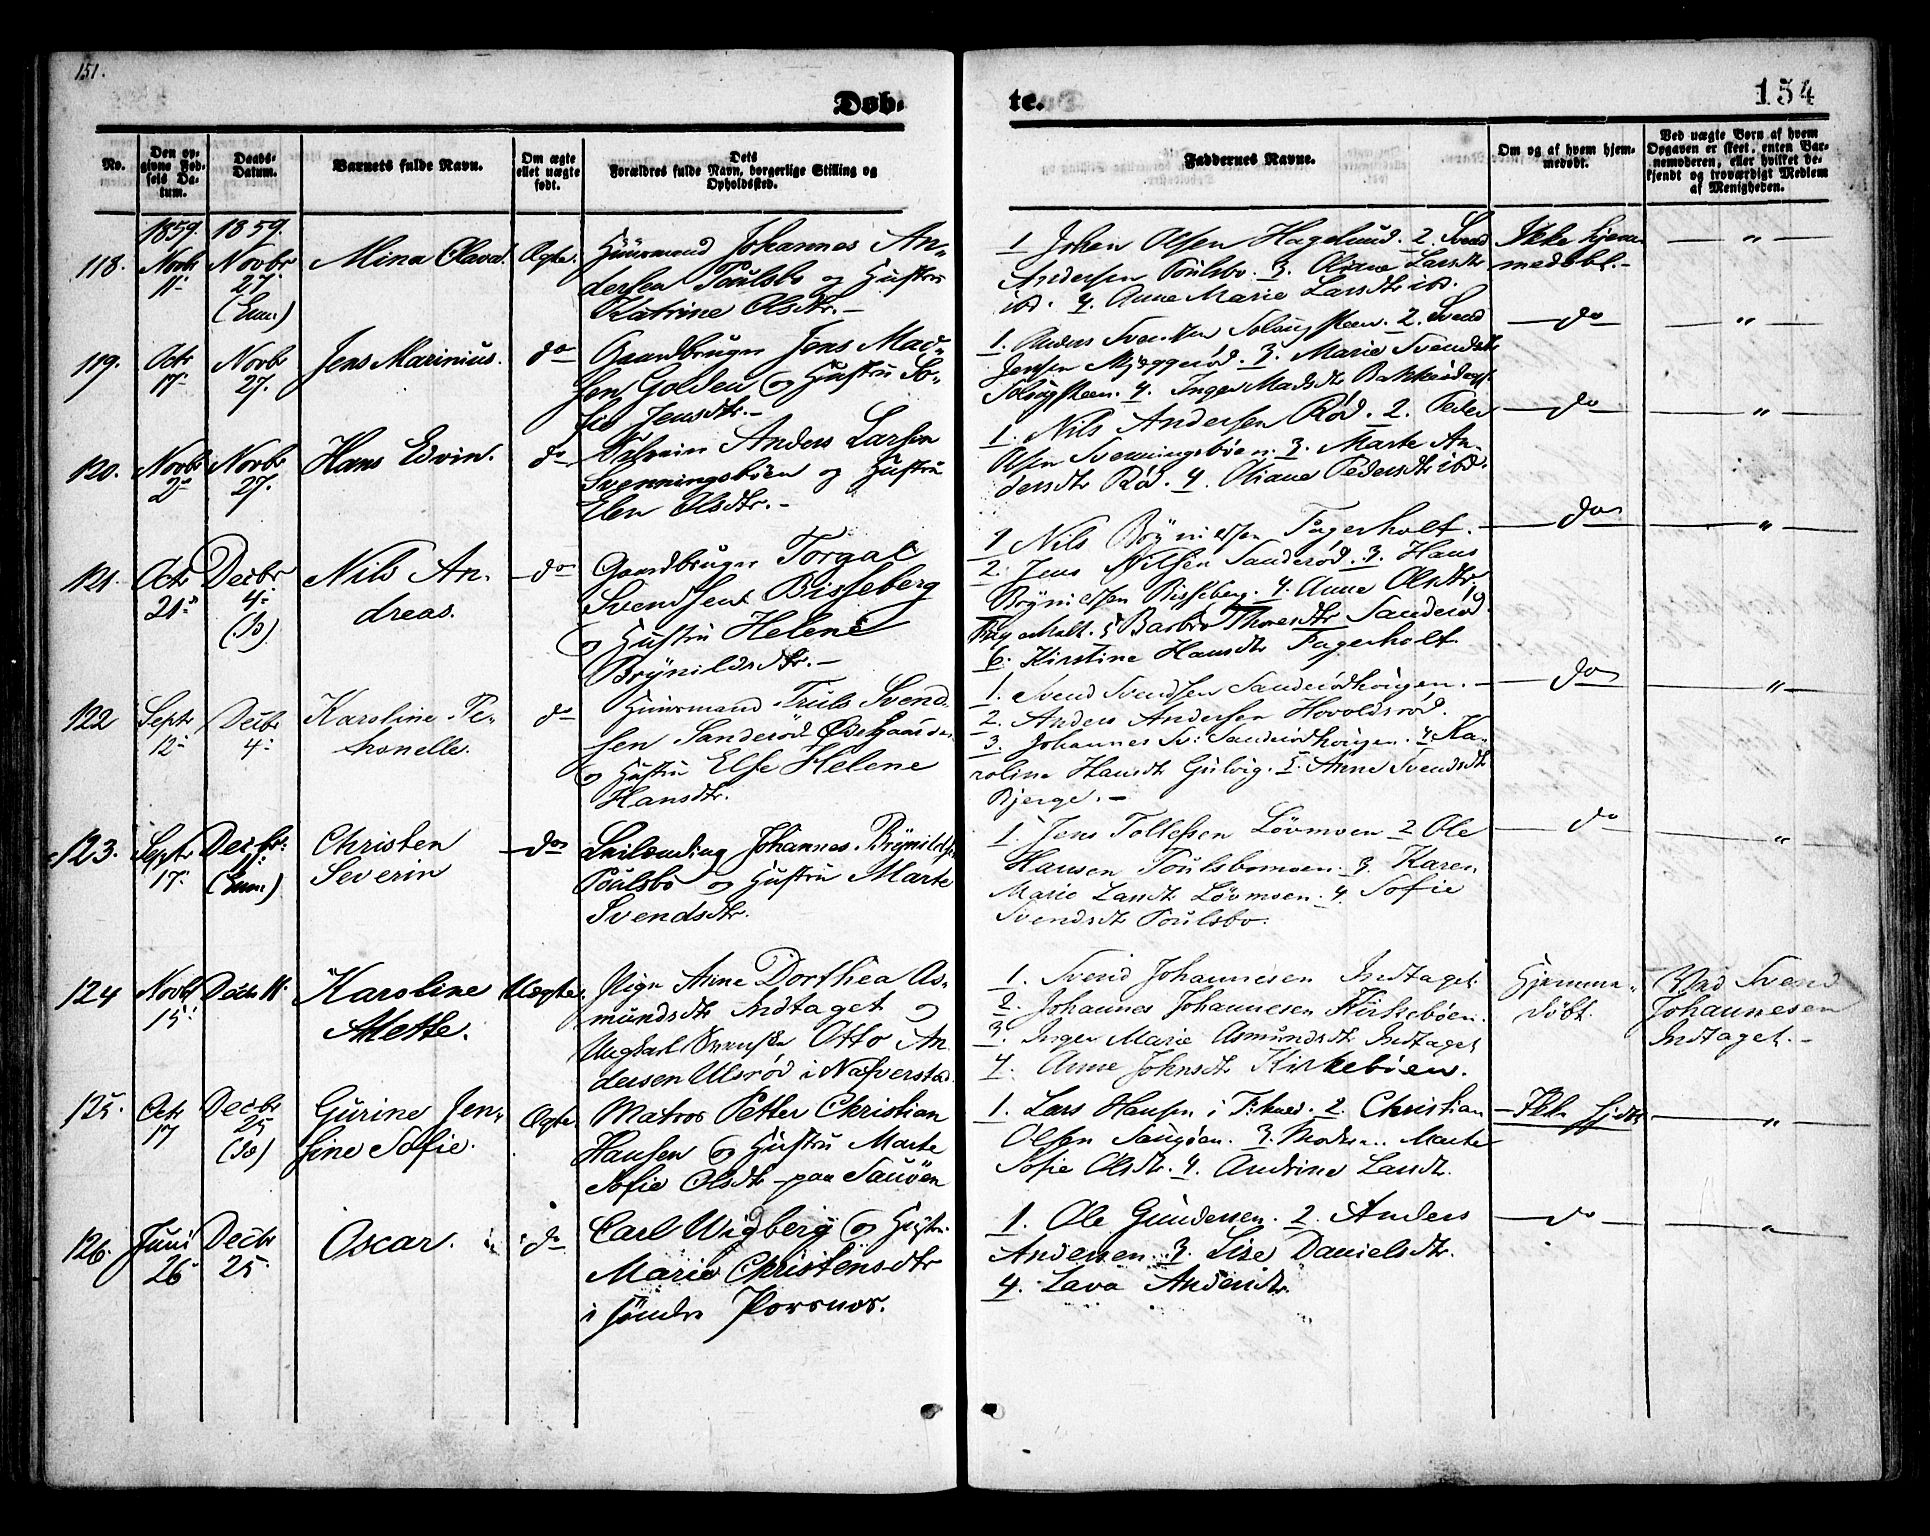 151.
154
Døb-
te.
No.
Den op-
givne Fød-
sels Da-
tum.
Daabs-
Datum.
Barnets fulde Navn.
Om ægte
ellet uægte
født.
Dets
Forældres fulde Navn, borgerlige Stilling og
Opholdssted.
Faddernes Navne.
Om og af hvem hjem-
medøbt.
Ved uægte Børn af hvem
Opgaven er skeet, enten Bar-
nemoderen, eller hvilket be-
kjendt og troværdigt Medlem
af Menigheden.
1859. 1859.
118. Novbr 11. Novbr 27. Mina Olava. Ægte. Huusmand Johannes An-
dersen Poulsbo og Hustru
Katrine Olsdtr.-
1. Johan Olsen Hagelund. 2. Svend
Andersen Poulsbo. 3. Oliane Larsdtr
ibd. 4. Anne Marie Larsdtr ibd.
Ikke hjem-
medøbt.-
"
119. Octr 17. Novbr 27. Jens Marinius. do Gaardbruger Jens Mad-
sen Golden og Hustru So-
fie Jensdtr.-
1. Anders Svendsen 2. Svend
Jensen Myggerød. 3. Marie Svendsdtr
4. Inger Madsdtr
do
"
120. Novbr 2. Novbr 27. Hans Edvin. do Anders Larsen
Svenningsbøen og Hustru
Elen Olsdtr.-
1. Nils Andersen Rød. 2. Peder
Olsen Svenningsbøen. 3. Marte An-
dersdtr Rød. 4. Oliane Pedersdtr ibd.
do
"
121. Octr 21. Decbr 4. (do) Nils An-
dreas. do Gaardbruger Torgal
Svendsen Bisseberg
og Hustru Helene
Brynildsdtr.-
1 Nils Brynildsen Fagerholt.
2. Jens Nilsen Sanderød. 3. Hans
Brynildsen Bisseberg. 4. Anne Olsdtr.
Fagerholt. 5 Barbro Thoresdtr Sanderød.
6. Kirstine Hansdtr Fagerholt.
do
"
122 Septr 12. Decbr 4. Karoline Pe-
tronelle. do Huusmand Truls Svend-
sen Sanderød Ødegaarden
og Hustru Else Helene
Hansdtr.
1. Svend Svendsen Sanderødhøigen.
2. Anders Andersen Hovoldsrød.
3. Johannes Sv: Sanderødhøigen. 4 Ka-
roline Hansdtr Gulvig. 5. Anne Svendsdtr
Bjerge.-
do
"
123. Septr 17. Decbr: 11. Christen
Severin do Leilænding Johannes Brynilds.
Poulsbo og Hustru Marte
Svendsdtr.
1. Jens Tollessen Løvmoen 2 Ole
Hansen Poulsbomoen. 3. Karen
Marie Larsdtr Løvmoen. 4. Sofie
Svendsdtr Poulsbo.
do
"
124 Novbr 15. Decbr 11. Karoline
Alette. Uægte. Pige Anne Dorthea As-
mundsdtr Indtaget og
Ungkarl Svenske Otto An-
dersen Ulsrød i Næfverstad.
1. Svend Johannesen Indtaget.
2. Johannes Johannesen Kirkebøen.
3. Inger Marie Asmundsdtr Indtaget
4. Anne Johnsdtr Kirkebøen.
Hjemme-
døbt.
Ved Svend
Johannesen
Indtaget.-
125. Octr 17 Decbr 25 (do) Gurine Jen-
sine Sofie. Ægte. Matros Petter Christian
Hansen og Hustru Marte
Sofie Olsdtr paa Sauøen
1. Lars Hansen i 2. Christian
Olsen Sauøen. 3. Moderen Marte
Sofie Olsdtr. 4. Andrine Larsdtr.
Ikke hjdbt
"
126. Juni 26 Decbr 25. Oscar. do Carl Wigberg og Hustr.
Marie Christensdtr
i søndre Porsnes.
1. Ole Gundersen. 2. Anders
Andersen. 3. Lise Danielsdtr.
4. Lava Andersdtr.
do
"